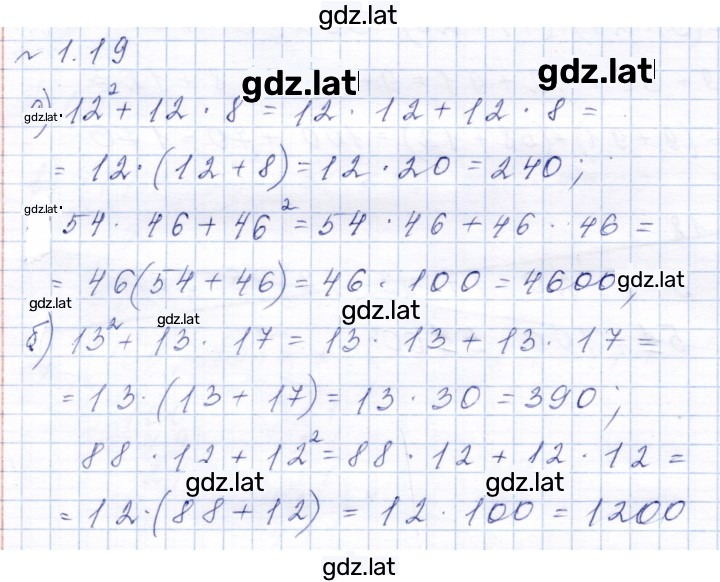 gdz.lat
№ 1.19
gdz.lat gdz.lat
а) 12² + 12 · 8 = 12 · 12 + 12 · 8 =
gdz.lat
= 12 · (12 + 8) = 12 · 20 = 240;
gdz.lat
54 · 46 + 46² = 54 · 46 + 46 · 46 =
= 46(54 + 46) = 46 · 100 = 4600;
gdz.lat
gdz.lat gdz.lat gdz.lat
б) 13² + 13 · 17 = 13 · 13 + 13 · 17 =
= 13 · (13 + 17) = 13 · 30 = 390;
88 · 12 + 12² = 88 · 12 + 12 · 12 =
gdz.lat gdz.lat
= 12 · (88 + 12) = 12 · 100 = 1200
gdz.lat